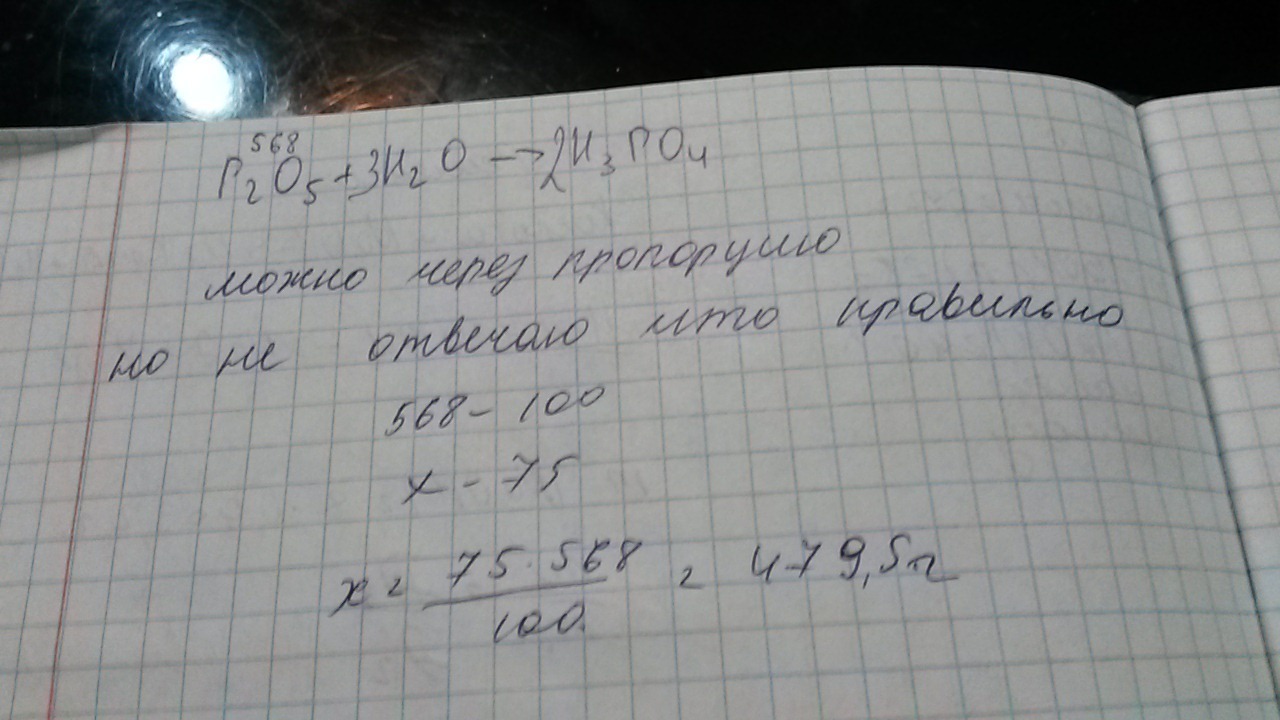 568
P₂O₅ + 3H₂O → 2H₃PO₄
можно через пропорцию
но не отвечаю что правильно
568 - 100
x - 75
x = 75 · 568 / 100 = 479,5г